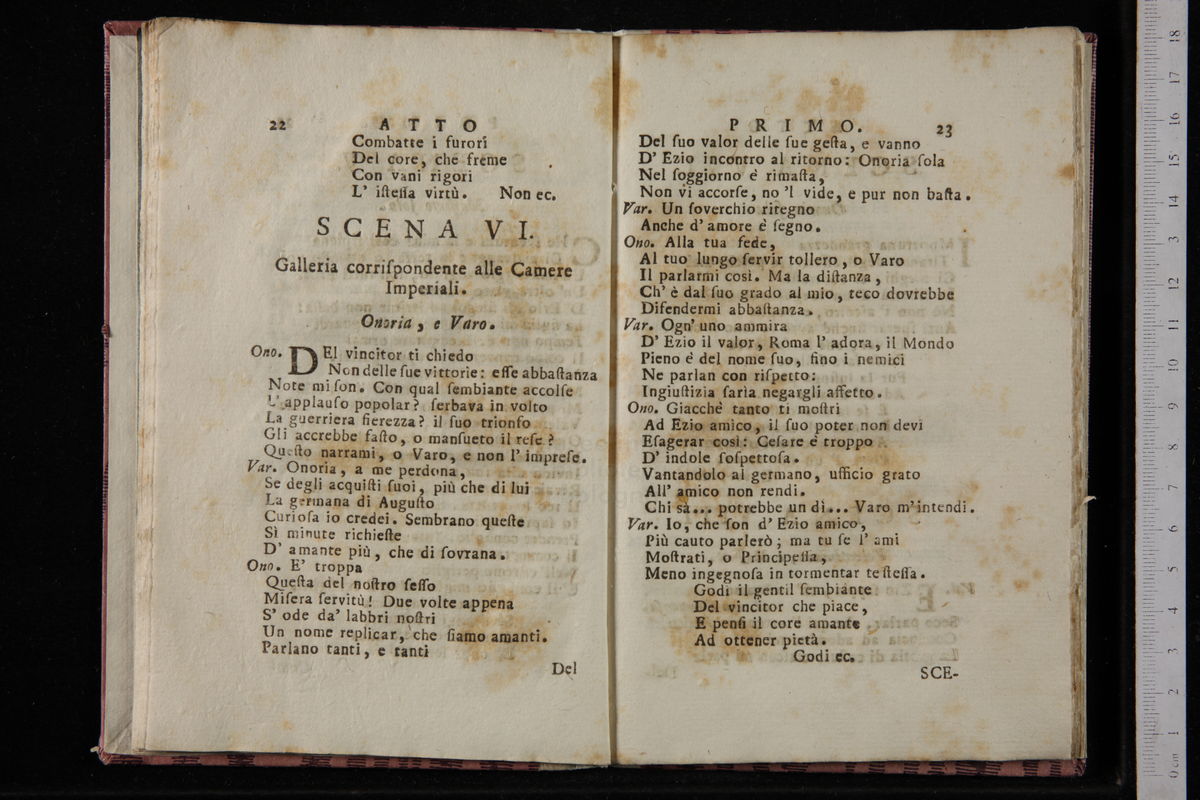 22 ATTO
Combatte i furori
Del core, che freme
Con vani rigori
L' iſteſſa virtù. Non ec.
SCENA VI.
Galleria corriſpondente alle Camere
Imperiali.
Onoria, e Varo.
Ono. DEl vincitor ti chiedo
Non delle ſue vittorie: eſſe abbaſtanza
Note mi ſon. Con qual ſembiante accolſe
L' applauſo popolar? ſerbava in volto
La guerriera fierezza? il ſuo trionfo
Gli accrebbe faſto, o manſueto il reſe?
Queſto narrami, o Varo, e non l' impreſe.
Var. Onoria, a me perdona,
Se degli acquiſti ſuoi, più che di lui
La germana di Auguſto
Curioſa io credei. Sembrano queſte
Sì minute richieſte
D' amante più, che di ſovrana.
Ono. E' troppa
Queſta del noſtro ſeſſo
Miſera ſervitù! Due volte appena
S' ode da' labbri noſtri
Un nome replicar, che ſiamo amanti.
Parlano tanti, e tanti
Del
PRIMO. 23
Del ſuo valor delle ſue geſta, e vanno
D' Ezio incontro al ritorno: Onoria ſola
Nel ſoggiorno è rimaſta,
Non vi accorſe, no 'l vide, e pur non baſta.
Var. Un ſoverchio ritegno
Anche d' amore è ſegno.
Ono. Alla tua fede,
Al tuo lungo ſervir tollero, o Varo
Il parlarmi così. Ma la diſtanza,
Ch' è dal ſuo grado al mio, teco dovrebbe
Difendermi abbaſtanza.
Var. Ogn' uno ammira
D' Ezio il valor, Roma l' adora, il Mondo
Pieno è del nome ſuo, fino i nemici
Ne parlan con riſpetto:
Ingiuſtizia ſaria negargli affetto.
Ono. Giacchè tanto ti moſtri
Ad Ezio amico, il ſuo poter non devi
Eſagerar così: Ceſare è troppo
D' indole ſoſpettoſa.
Vantandolo al germano, ufficio grato
All' amico non rendi.
Chi sà... potrebbe un dì... Varo m'intendi.
Var. Io, che ſon d' Ezio amico,
Più cauto parlerò; ma tu ſe l' ami
Moſtrati, o Principeſſa,
Meno ingegnoſa in tormentar te ſteſſa.
Godi il gentil ſembiante
Del vincitor che piace,
E penſi il core amante
Ad ottener pietà.
Godi ec.
SCE-